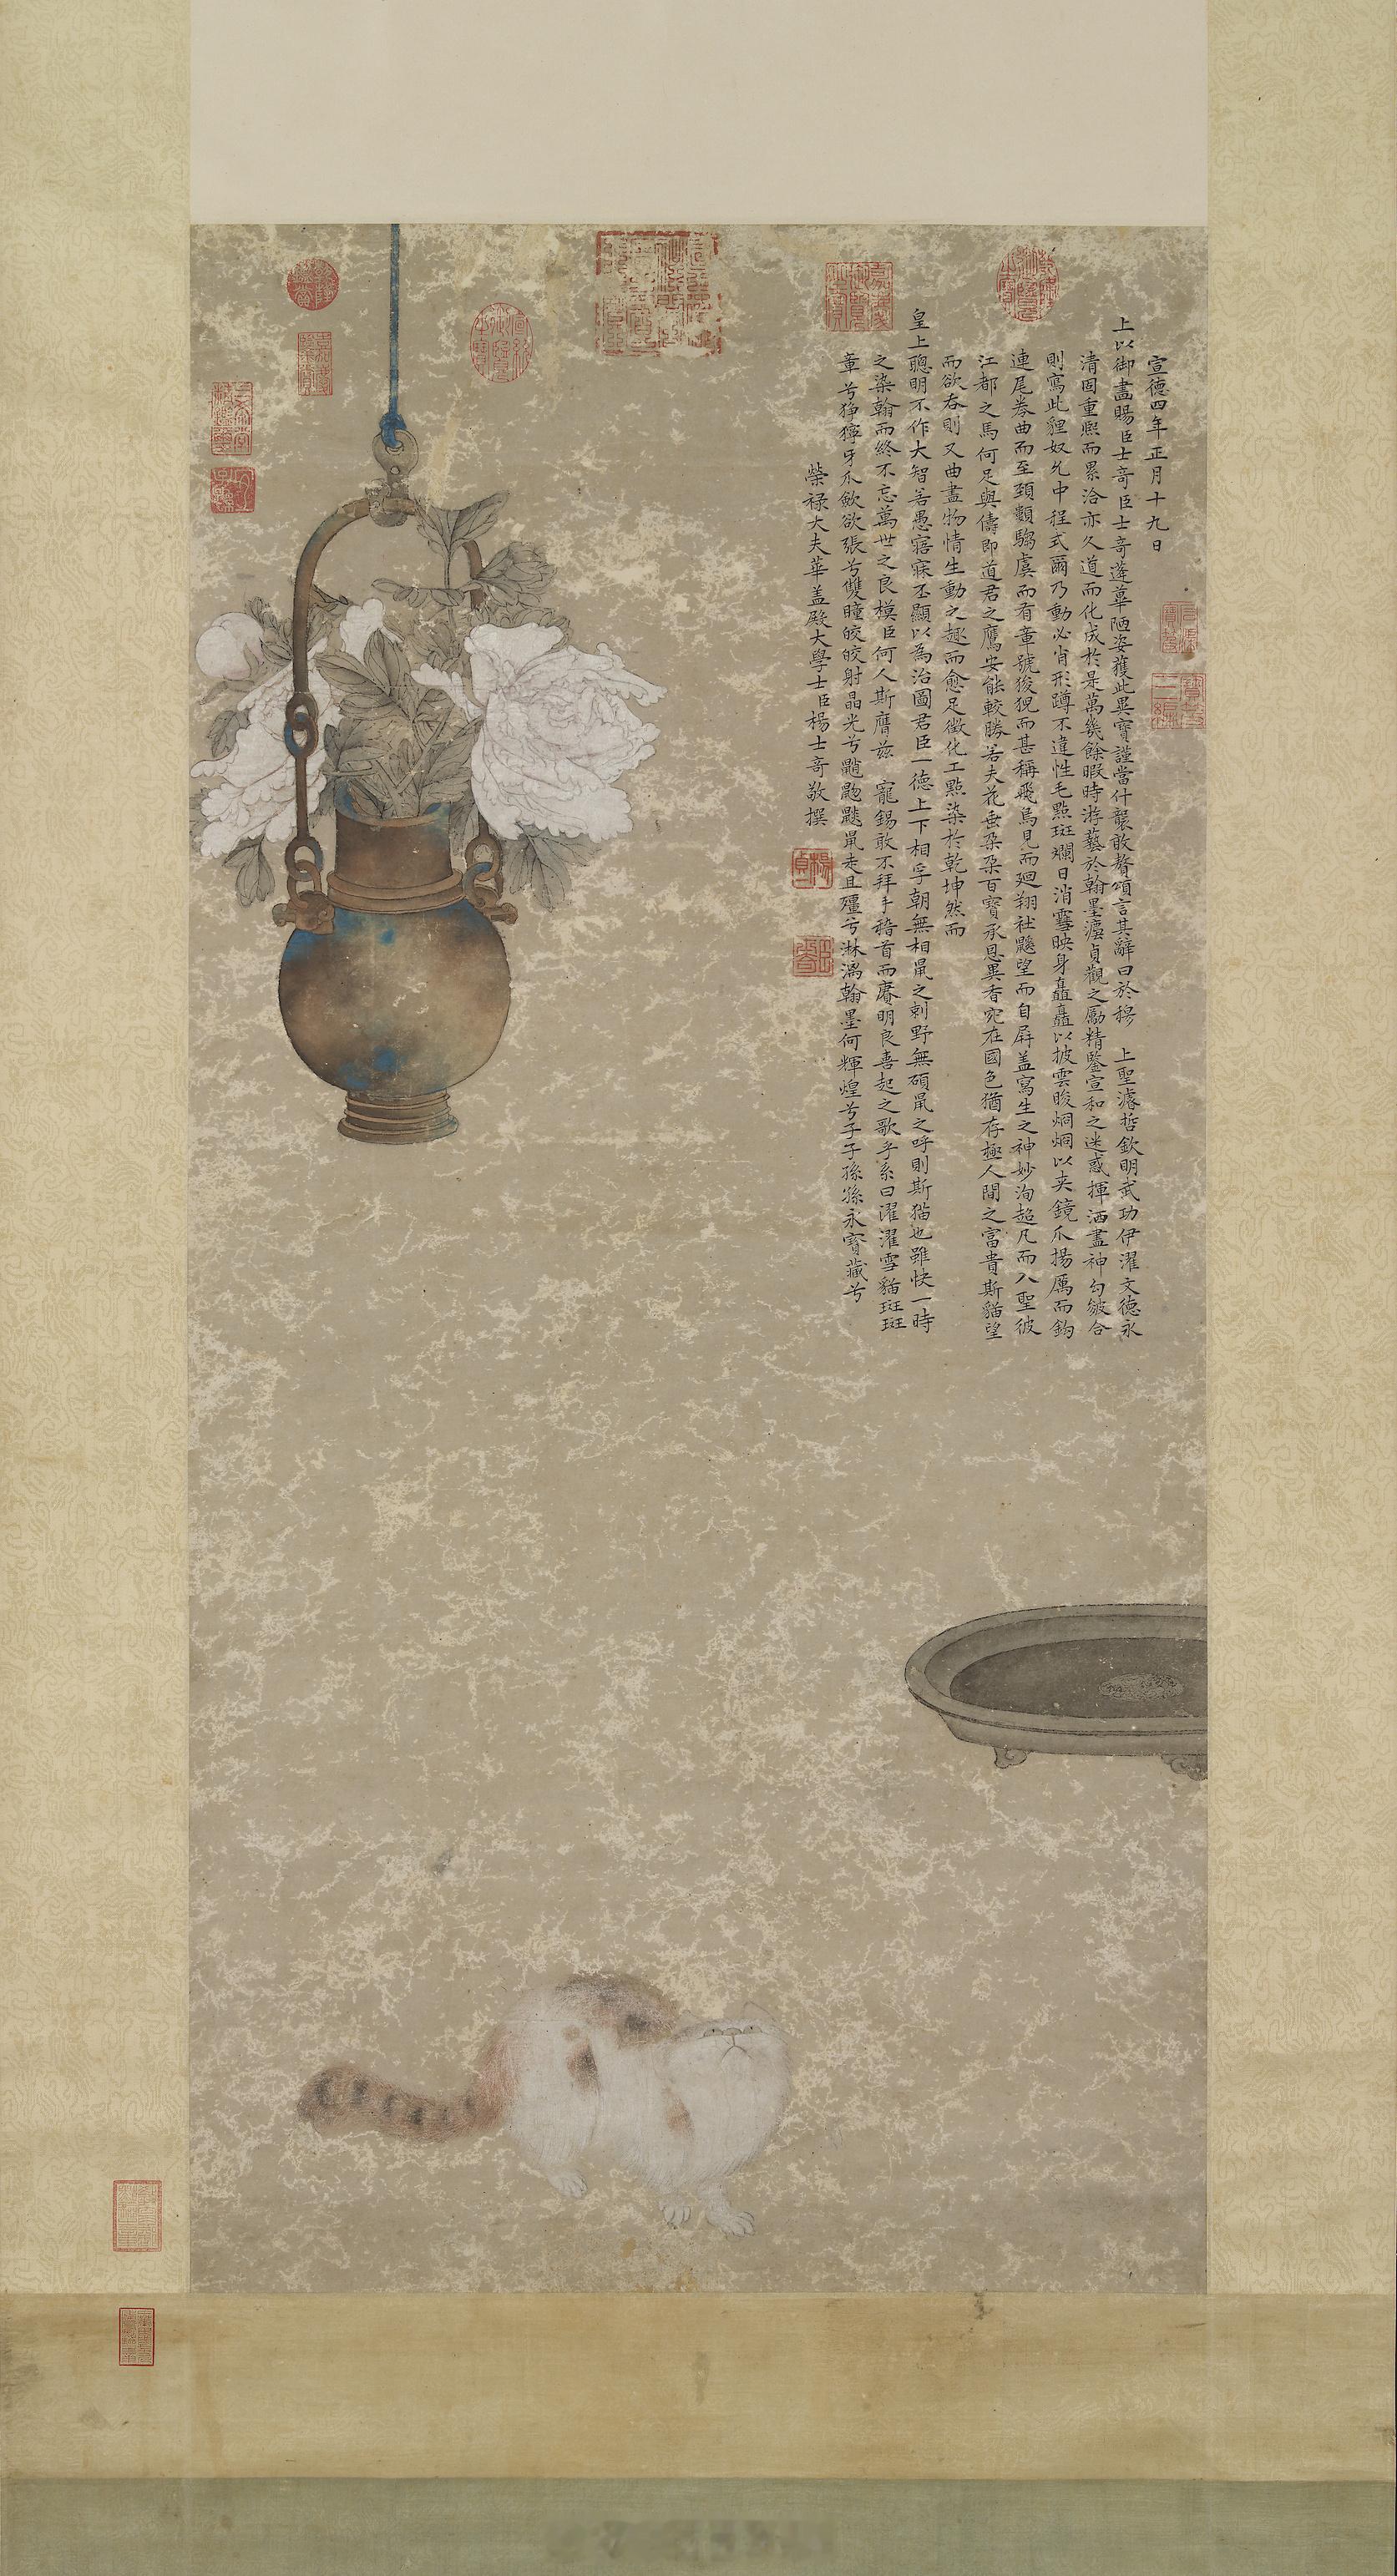 宣德四年正月十九日
上以御畫賜臣士奇臣士奇蓬蓽陋姿獲此異寶謹當什襲敢贅頌言其辭曰於穆　上聖濬哲欽明武功伊濯文德永
清固重熙而累洽亦久道而化成於是萬幾餘暇時游藝於翰墨瀍貞觀之勵精鑒宣和之迷惑揮洒盡神勾皴合
則寫此貍奴允中程式爾乃動必肖形蹲不違性毛點斑斕日消霻映身矗矗以披雲晙烱烱以夾鏡爪揚厲而鈎
連尾卷曲而至頚顙騶虞而有章號狻猊而甚稱飛鳥見而廻翔社鼷望而自屏盖寫生之神妙洵超凡而入聖彼
江都之馬何足與儔即道君之鷹安能較勝若夫花垂朶朶百寶承恩異香宛在國色猶存極人間之富貴斯貓望
而欲吞則又曲盡物情生動之趣而愈足徵化工點染於乾坤然而
皇上聰明不作大智若愚寤寐丕顯以為治圖君臣一德上下相孚朝無相鼠之刺野無碩鼠之呼則斯猫也雖快一時
之染翰而終不忘萬世之良模臣何人斯膺兹　寵錫敢不拜手稽首而賡明良喜起之歌乎系曰濯濯雪貓斑斑
章兮猙獰牙爪歛欲張兮雙瞳皎皎射晶光兮鼫鼩鼷鼠走且殭兮淋漓翰墨何輝煌兮子子孫孫永寶藏兮
榮祿大夫華盖殿大學士臣楊士奇敬撰